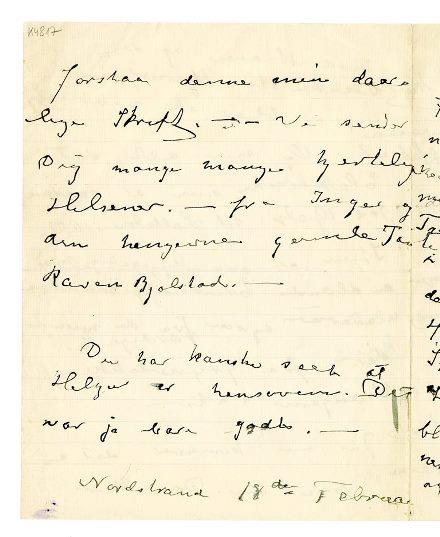 K4817
Forstaa denne min daar-
lige Skrift. — Vi sender
Dig mange mange hjertelige
Helsener. — fra Inger og
din hengivne gamle Tante
Karen Bjølstad. —
Du har kanske seet at
Helga er hensoven. Det
var ja bare godt. —
Nordstrand 18de Februar